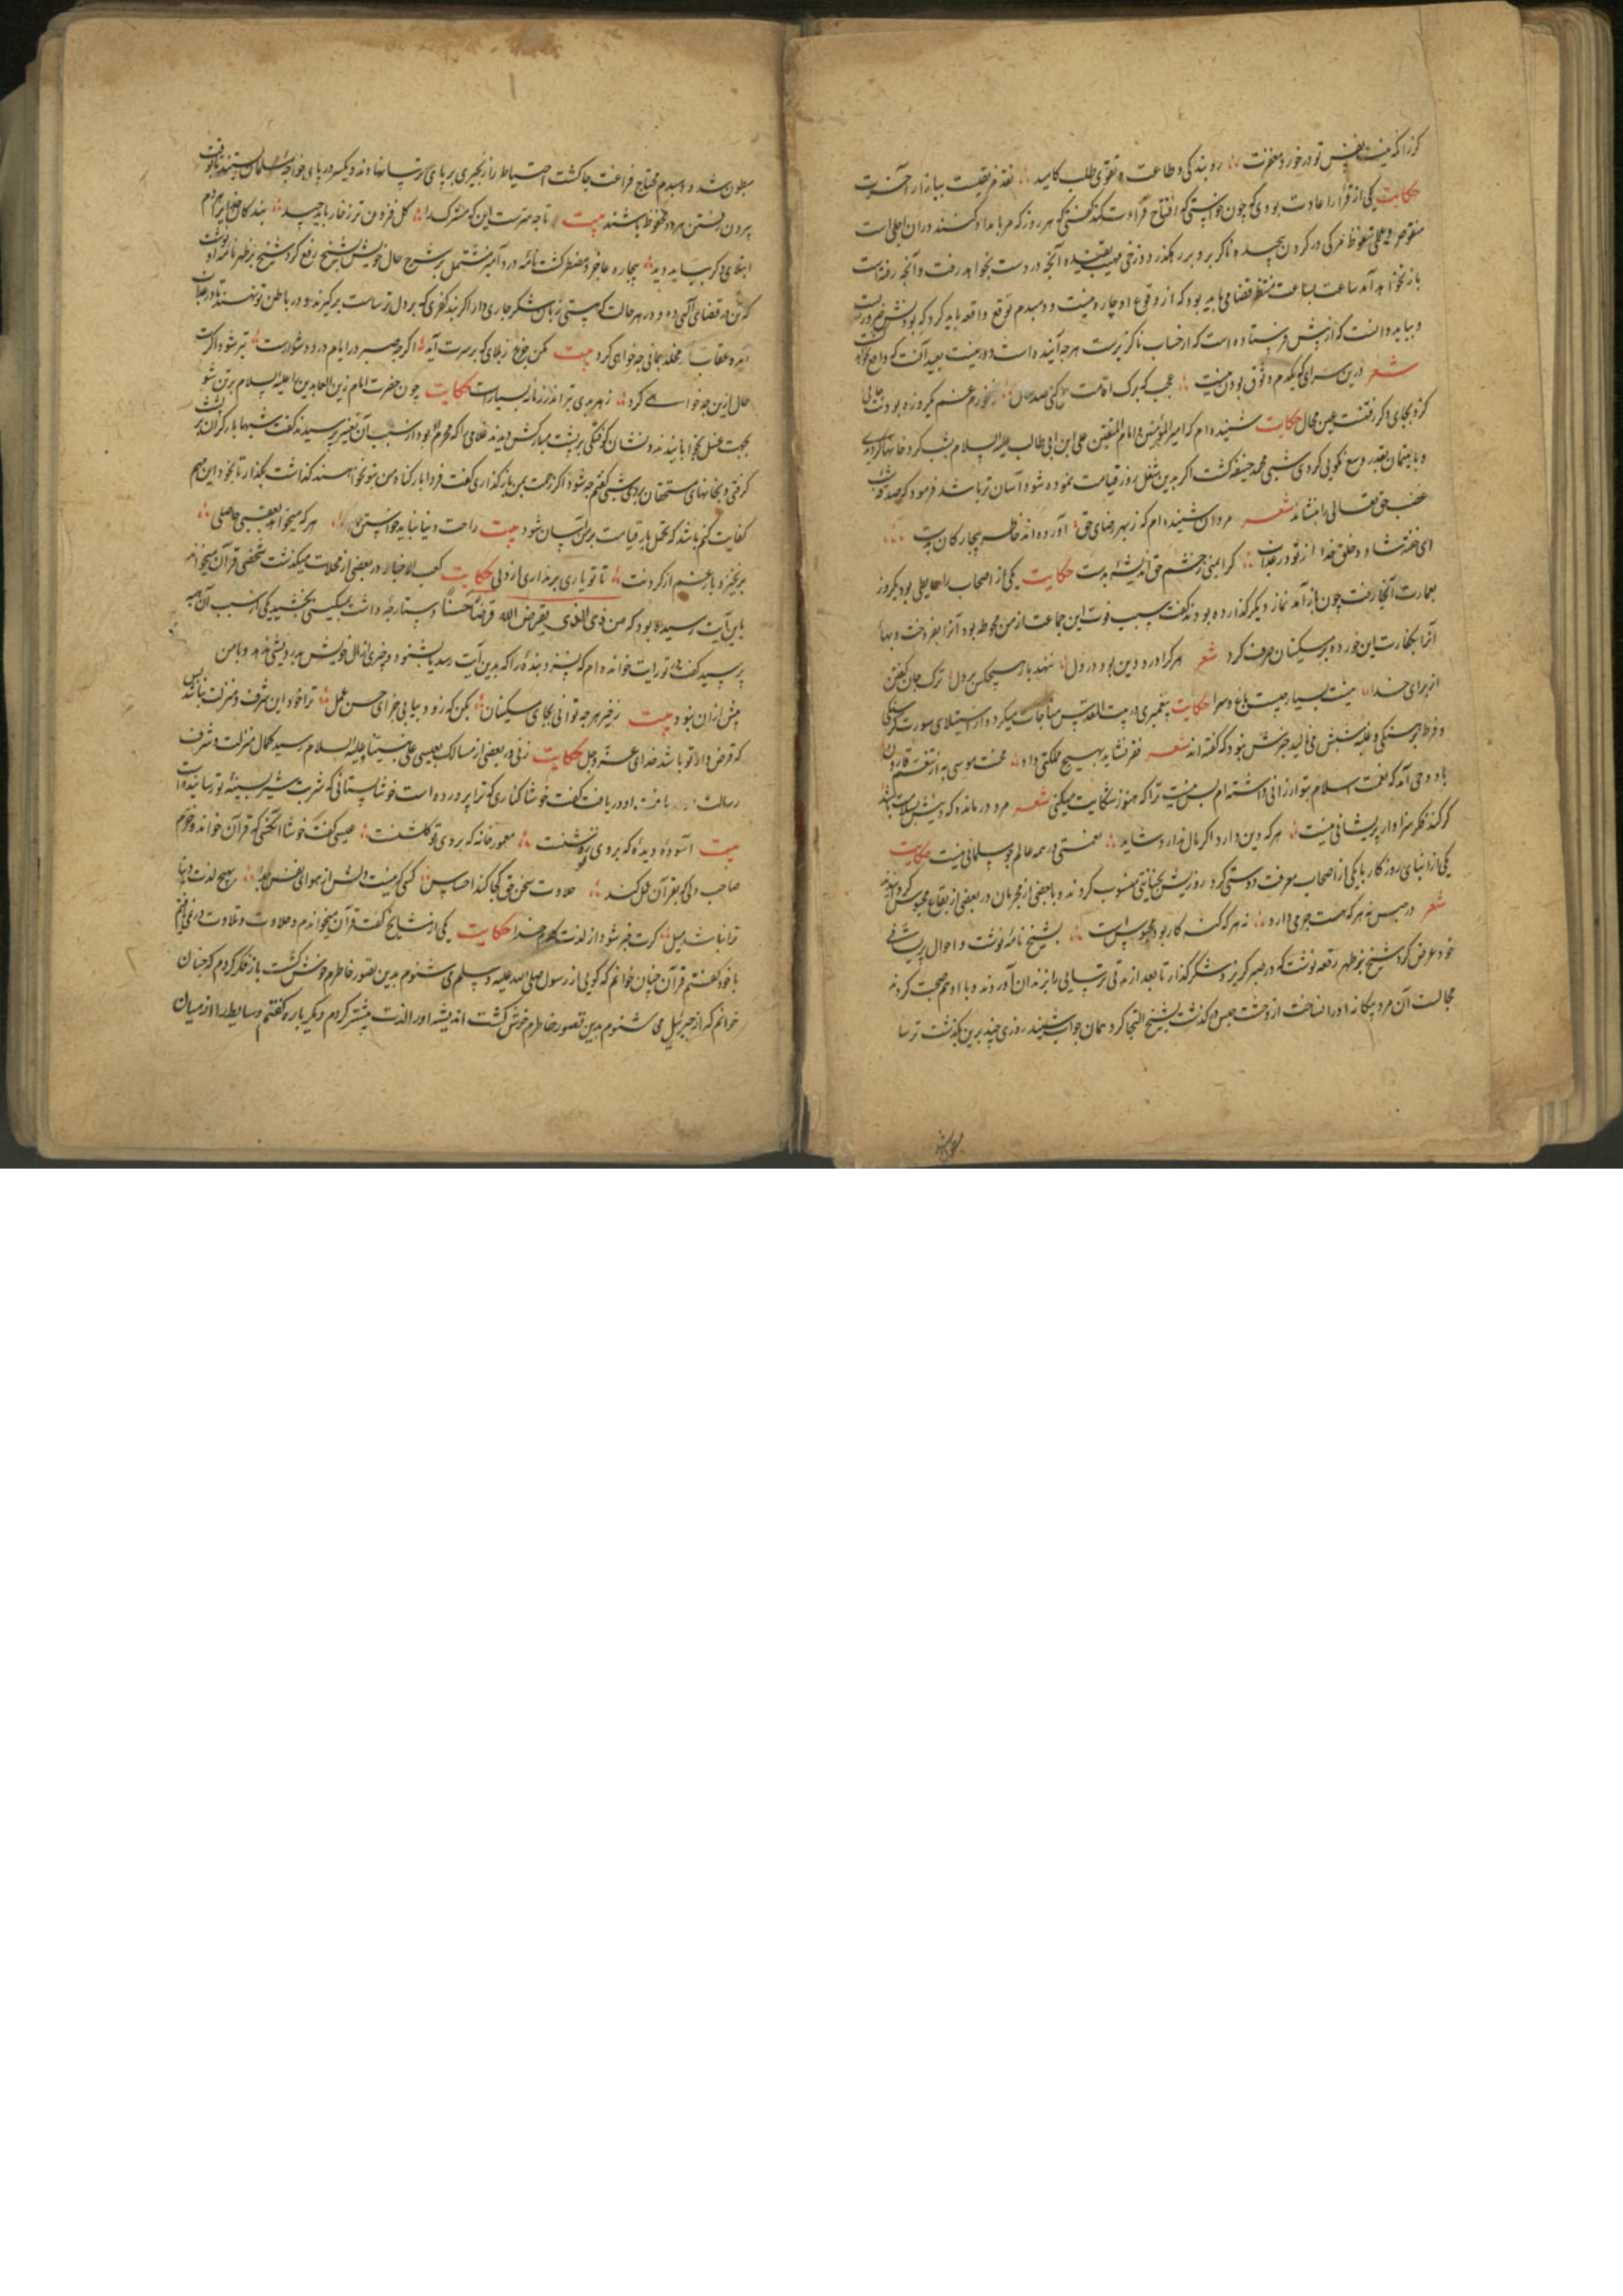 گر زانکه نیست نفس تو در خورد مغفرت رو بندگی و طاعت و تقوی طلب کامید نقد ببازار آخرت
حکایت یکی از قرّا را عادت بودی که چون خواستی که افتتاح قراءت کند گفتی که هر روز که هر بامداد کنند در آن اجلی است
منقوص و عملی محفوظ مرگی در گردن پیچیده ناگزیر و بر رهگذر دوزخی مهیب آنچه در دست بخواهد رفت و آنچه رفتست
باز نخواهد آمد ساعت بساعت منتظر قضا می باید بود که از وقوع او چاره نیست و دمبدم توقع واقعه باید کرد که
و بباید دانست که از پیش فرستاده است که از حساب ناگزیرست هرچه آینده است دور نیست بعید آنست که
شعر درین سرای که یکدم وثوق بودن نیست عجب که برک اقامت کنی صد سال نخورم غم یکروزه
کرد بجای دگر رفتنت عین محال حکایت شنیده ام که امیر المؤمنین و امام المتقین علی ابن ابی طالب علیه السلام بشب گرد خانها گردیدی
و با یتیمان بقدر وسع نکویی کردی شبی محمد حنیفه گفت اگر بدین شغل روز قیامت نموده شود آسان تر باشد فرمود که صدقه شب
غضب حق تعالی را بنشاند شعر مردان شنیده ام که ز بهر رضای حق آورده اند خاطر بیچارگان بدست
ای خفته شاد و خلق خدا از تو در عذاب کرایمنی ز خشم حق اندیشه بدست حکایت یکی از اصحاب را حایطی بود یکروز
بعمارت آنجا رفت چون باز آمد نماز دیگر گذارده بودند گفت سبب فوت این جماعت از من حوطه بود آنرا بفروخت و بهاء
آنرا بکفارت این خورده بر مسکینان صرف کرد شعر هر کرا درد دین بود در دل ننهد بار هیچکس بر دل ترک جان گفتن
از برای خدا نیست بسیار چیست باغ و سرا حکایت پیغمبری در بیت المقدس مناجات میکرد و از استیلای سورت گرسنگی
و فرط برهنگی و غلبه شپش می نالید جزش نبود که گفته اند شعر فقر نشاید بهیچ مملکتی داد محنت موسی به از تنعم قارون
باو وحی آمد که نعمت اسلام بتو ارزانی داشته ام بس نیست ترا که هنوز شکایت میکنی شعر مرد درمانده که دینش بسلامت باشد
گر کند فکر سزاوار پریشانی نیست هر که دین دارد اگر مال ندارد شاید نعمتی در همه عالم چو مسلمانی نیست حکایت
یکی از ابنای روزگار با یکی از اصحاب معرفت دوستی کرد روزیش بخیانتی منسوب کردند و با بعضی از مجرمان در بعضی از بقاع محبوس گردانیدند
شعر در حبس نه هر که هست جرمی دارد نه هر که گنه کار بود محبوس است بشیخ نامه نوشت و احوال پریشانی
خود عرض کرد شیخ بر ظهر رقعه نوشت که در صبر گریز و شکر گذار تا بعد از مدتی ترسایی را بزندان آوردند و با او هم صحبت کردند
مجالست آن مرد بیگانه او را نساخت از وحشت حبس در گذشت بشیخ التجا کرد همان جواب شنید روزی چند برین بگذشت ترسا
مبطون شد
مبطون شد و دمبدم محتاج فراغت جا گشت احتیاط را زنجیری بر پای ترسا نهادند و یکسر در پای خواجه مسلمان
بیرون رفتن هر دو محفوظ باشند بیت تا چه سرست این که مشرک را گل فزون تر ز خار باید چید بندگان خاص را هر دم
ابتلای دگر بباید دید بیچاره عاجز و مضطر گشت نامه درد آمیز مشتمل بر شرح حال خویش بشیخ رفع کرد شیخ بر ظهر نامه او نوشت
که تن در قضای الهی ده و در هر حالت که هستی زبان بشکر جاری دار اگر بند کفری که بر دل ترساست بر گیرند و در باطن تو نهند
آید و عقاب مخلد بمانی چه خواهی کرد بیت مکن جزع ز بلای که بر سرت آید اگر چه صبر در ایام درد دشوارست
حال ازین چه خواهی کرد ز هر بدی بتر اندر زمانه بسیارست حکایت چون حضرت امام زین العابدین را علیه السلام
بجهت غسل بخوابانیدند نشان کوفتگی بر پشت مبارکش دیدند غلامی را که محرم او بود از سبب آن تغییر پرسیدند گفت شبها بار گران بر پشت
گرفتی و بخانهای مستحقان بردی شبی گفتم چه شود اگر زحمت بمن باز گذاری گفت فردا بار گناه من بتو نخواهند گذاشت بگذار تا بخود این مهم
کفایت کنم باشد که تحمل بار قیامت بر من آسان شود بیت راحت دنیا نباید خواستن هر که میخواهد بعقبی حاصلی
برنخیزد بار غم از گردنت تا تو باری برنداری از دلی حکایت کعب الاحبار در بعضی از محلات میگذشت شخصی قرآن میخواند
باین آیت رسیده بود که من ذی الذی یقرض الله قرضا حسنا دستارچه داشت بمسکینی بخشید یکی از سبب آن
پرسید گفت در تورات خوانده ام که بنده را که بدین آیت رسد یا بشنود و چیزی از مال خویش بدرویشی ندهد و با من
بیش از آن نبود بیت ز خیر هر چه توانی بجای مسکینان بکن که زود بیابی جزای حسن عمل ترا خود این شرف و منزلت نه بس باشد
که قرض دار تو باشد خدای عز و جل حکایت زنی در بعضی از مسالک بعیسی علی نبینا و علیه السلام رسید کمال منزلت و شرف
رسالت او دریافت گفت خوشا کناری که ترا پرورده است خوشا پستانی که شربت شیر بسینه تو رسانیده است
بیت آسوده دیده که بروی تو روشنست معمور خانه که بروی تو گلشنست عیسی گفت خوشا آنکس که قرآن خواند و خرم
صاحب دلی که بقرآن عمل کند حلاوت سخن حق کجا کند احساس کسی که نیست دلش از هوای نفس بهیچ لذت دنیا
ترا نباشد میل گرت خبر شود از لذت کلام خدا حکایت یکی از مشایخ گفت قرآن میخواندم و حلاوت و تلاوت در نمی یافتم
با خود گفتم قرآن چنان خوانم که گویی از رسول صلی الله علیه و سلم می شنوم بدین تصور خاطرم خوش گشت باز فکر کردم که چنان
خوانم که از جبرئیل می شنوم بدین تصور خاطرم خوش گشت اندیشه او را لذت بیشتر کردم و دیگر باره گفتم وسایط را از میان